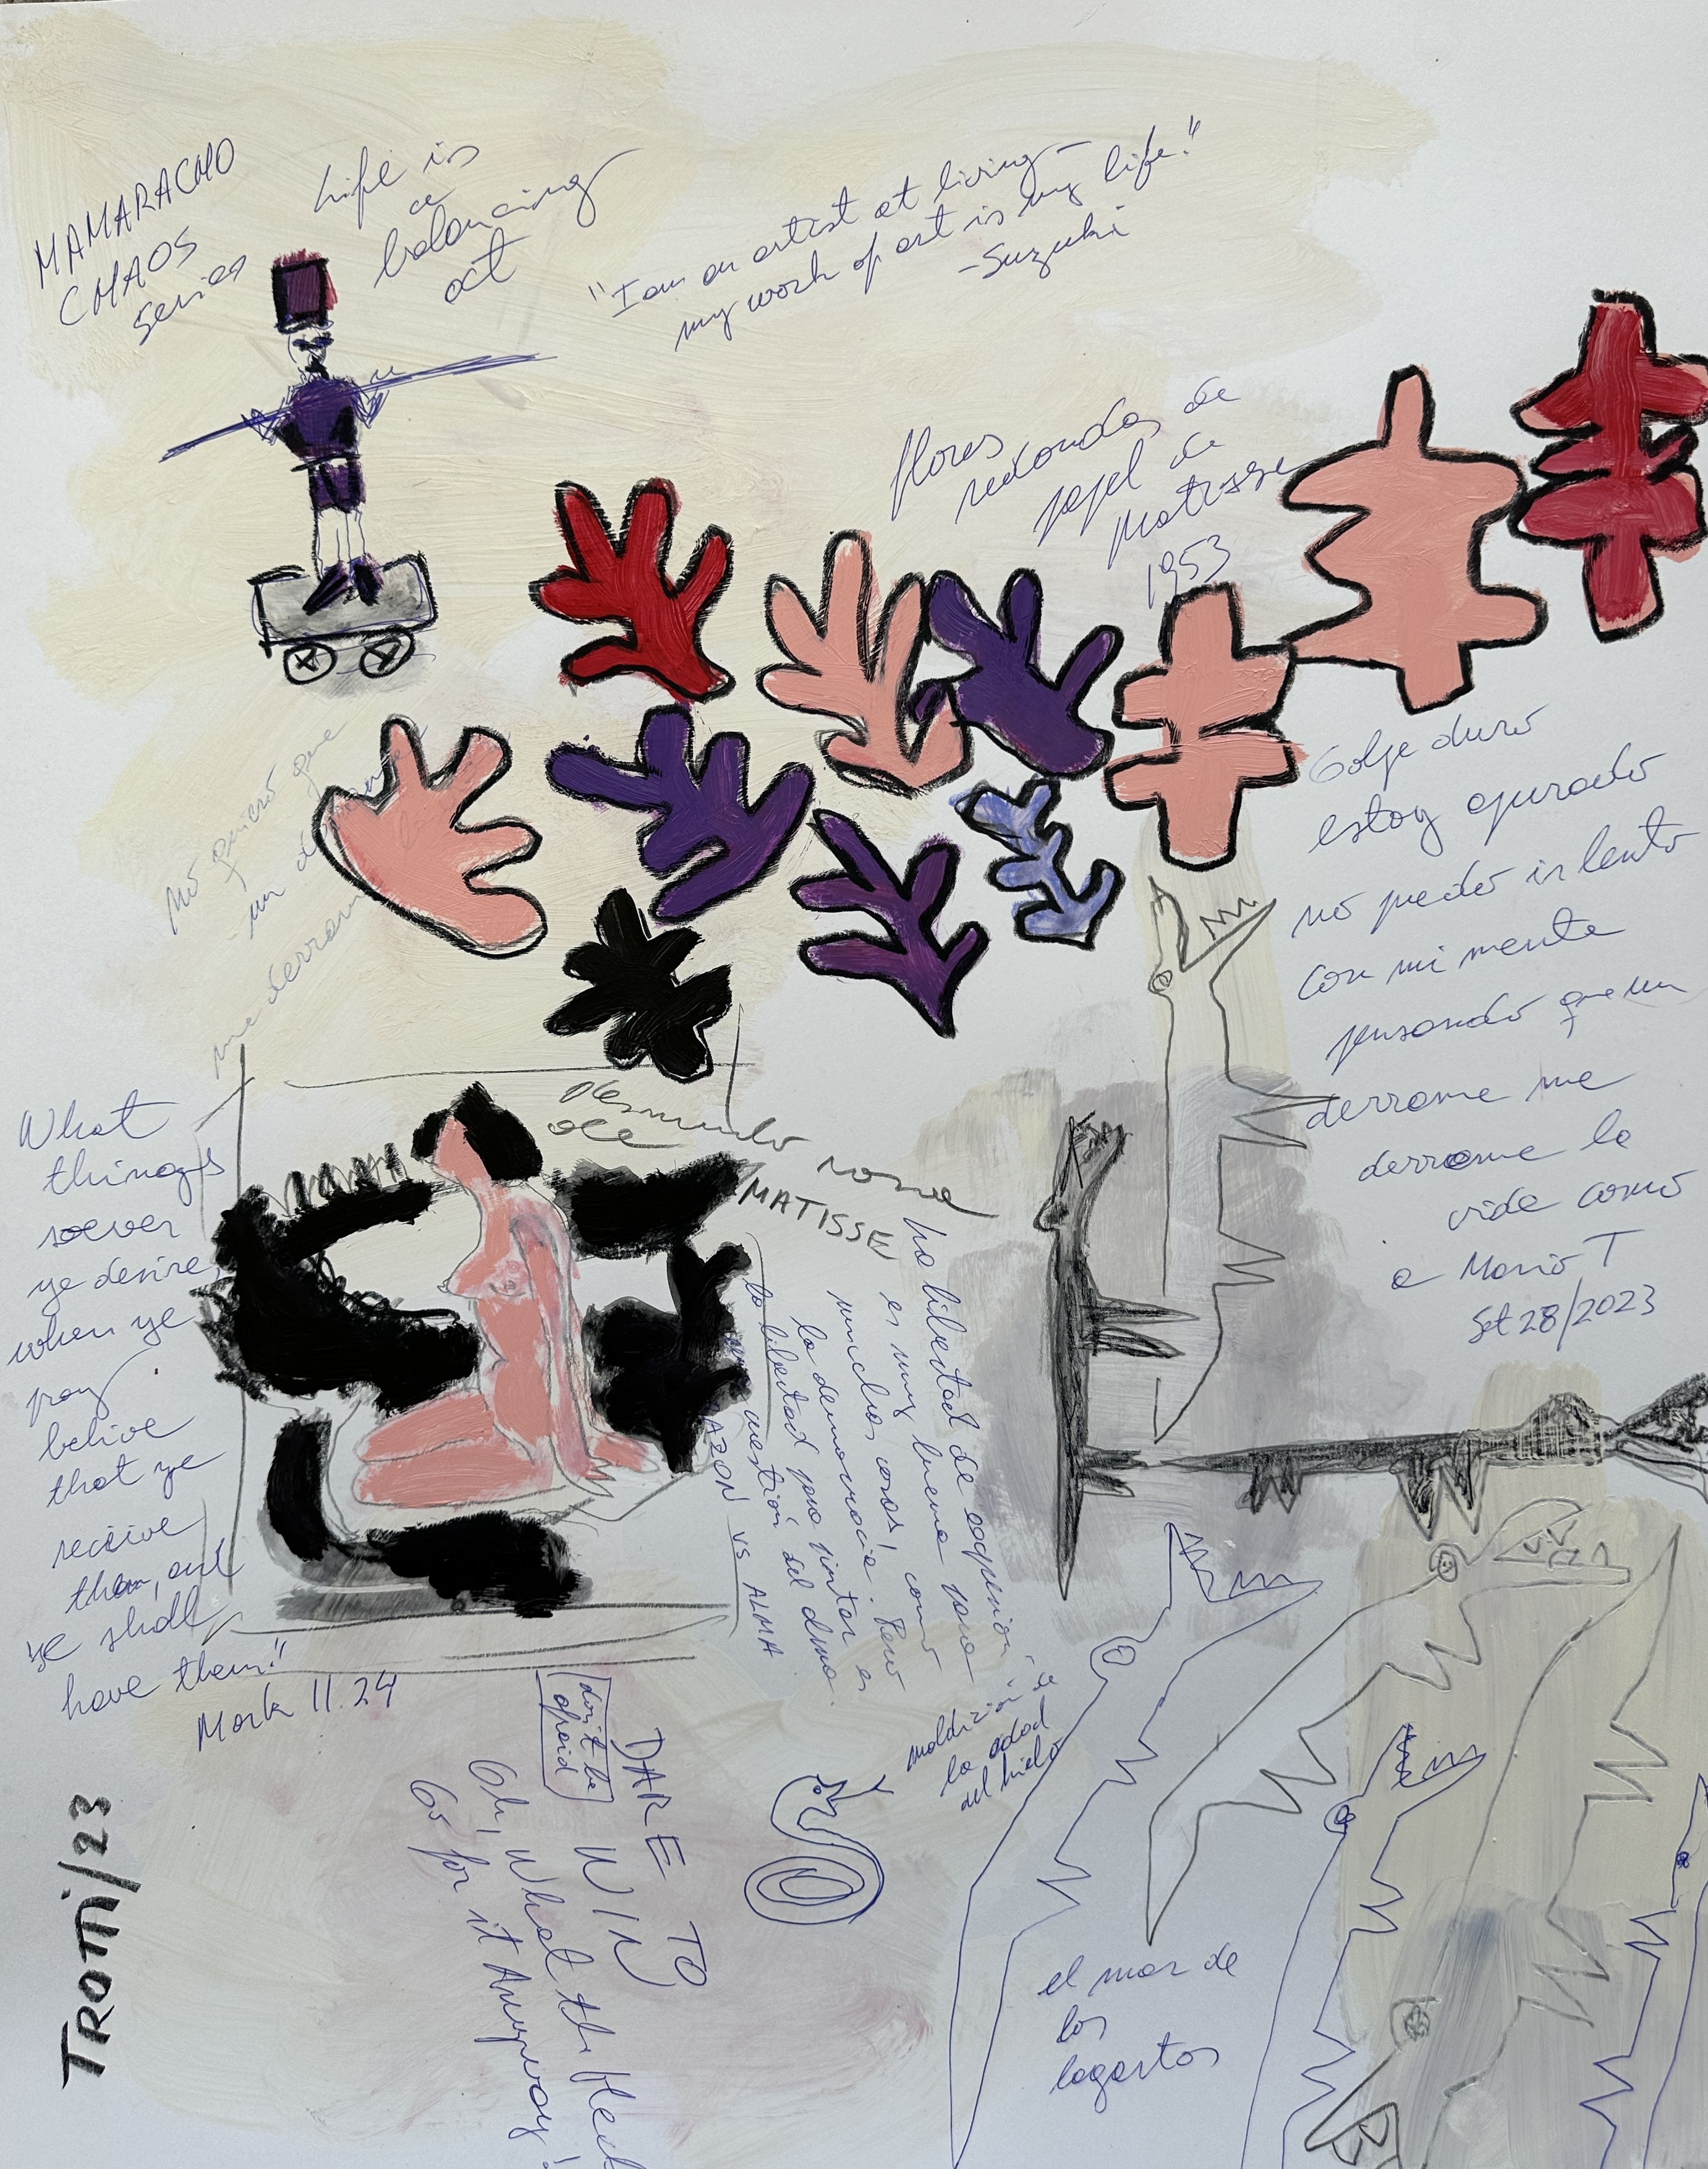 MAMARACHO
CHAOS
series
Life is
a
balancing
act
"I am an artist at living -
my work of art is my life."
-Suzuki
flores
redondas de
papel de
Matisse
1953
no quiero que
un derrame
me derrame
Golpe duro
estoy apurado
no puedo ir lento
con mi mente
pensando que un
derrame me
derrame la
vida como
a Mario T
Set 28/2023
What
things
soever
ye desire,
when ye
pray
belive
that ye
receive
them, and
ye shall
have them."
Mark 11.24
Desnudo rosa
de
MATISSE
La libertad de expresión
es muy buena para
muchas cosas! como
la democracia. Pero
la libertad para pintar es
cuestión del alma.
RAZON VS ALMA
maldición de
la edad
del hielo
don't be
afraid
DARE TO
WIN
Oh, What the Heck
Go for it Anyway!
el mar de
los
lagartos
TROTTI/23